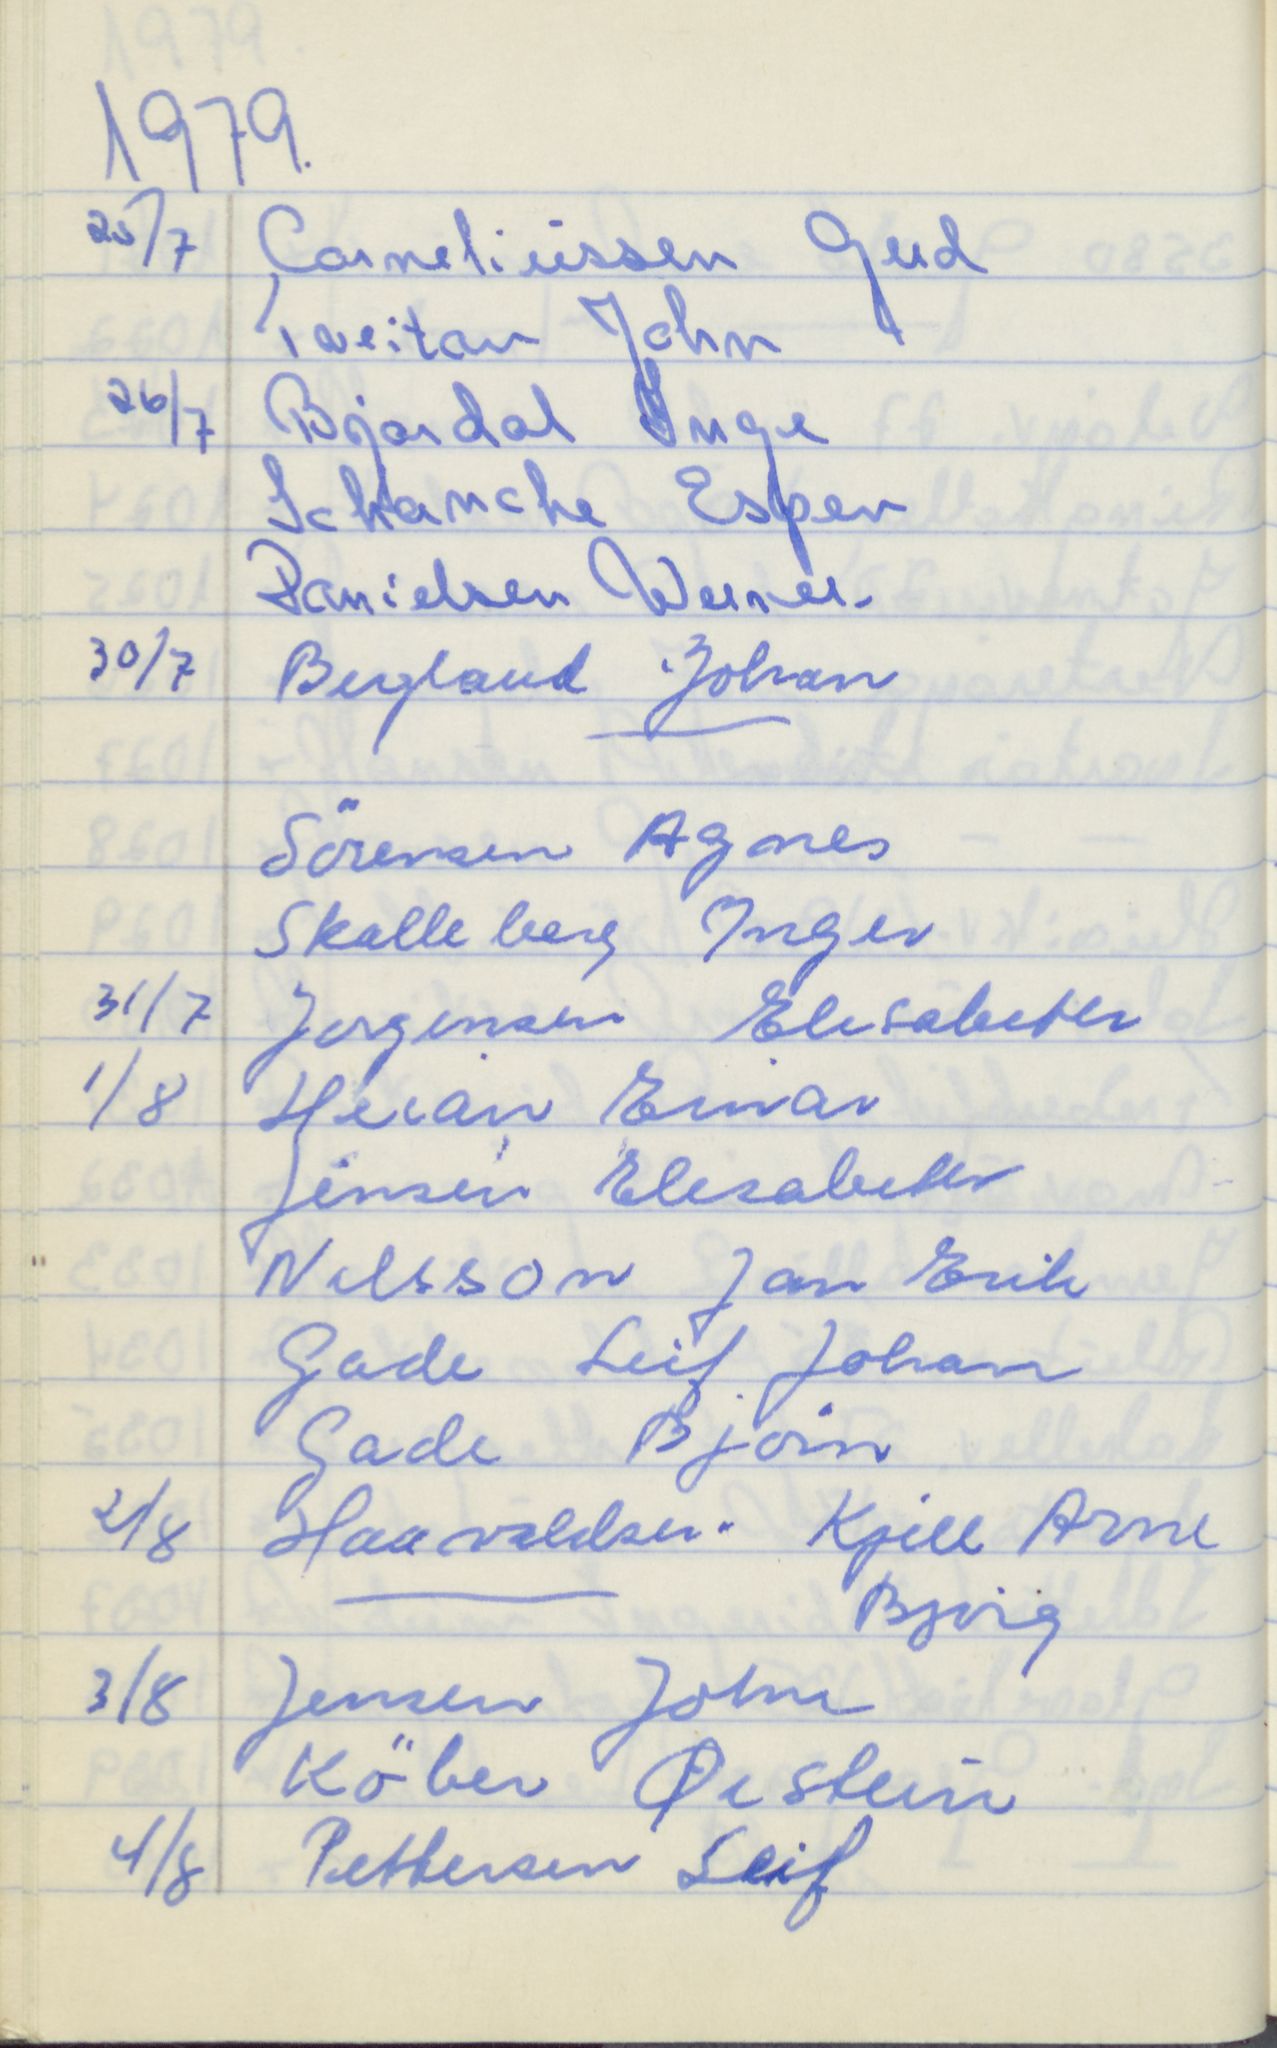 1979.
25/7 Corneliussen Gerd
Tveitan John
26/7 Bjordal Inge
Schanche Espen
Danielsen Werner.
30/7 Bergland Johan
Sörensen Agnes
Skalleberg Inger
31/7 Jorgensen Elisabeth
1/8 Heian Einar
Jensen Elisabeth
Nilsson Jan Erik
Gade Leif Johan
Gade Bjørn
2/8 Haavaldsen. Kjell Arne
3/8 Jensen John
Köber Øistein
4/8 Pettersen Leif